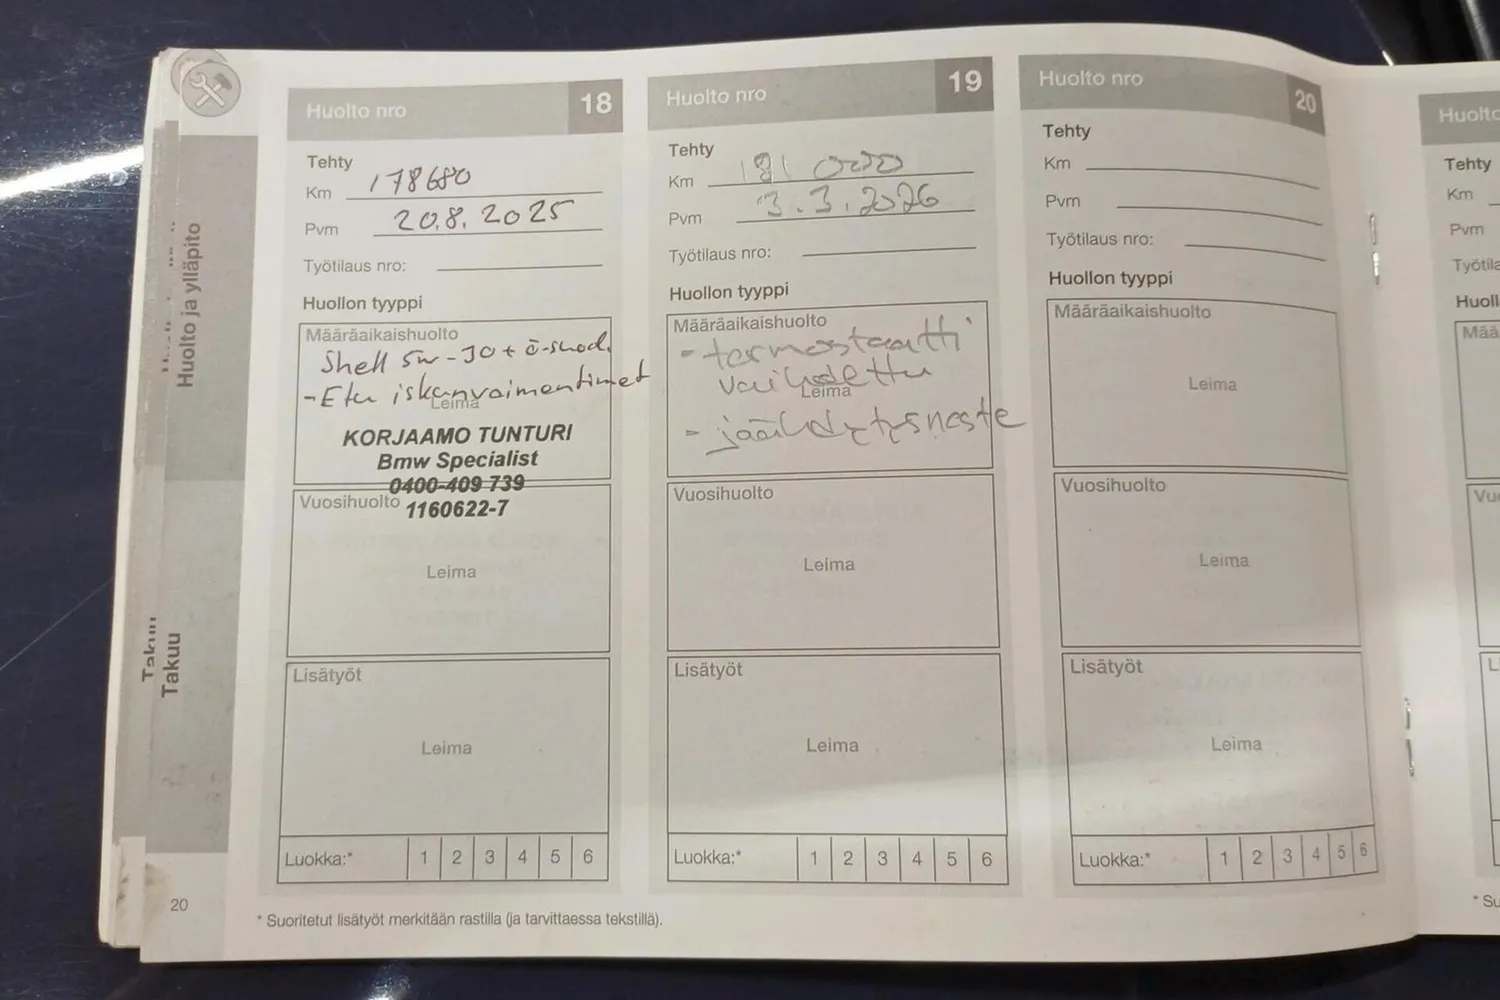 Huolto ja ylläpito
Takuu
Takuu
Huolto nro 18
Tehty
Km 178680
Pvm 20.8.2025
Työtilaus nro:
Huollon tyyppi
Määräaikaishuolto
Shell 5w-30 + ö-suod.
- Etu iskanvaimentimet
Leima
KORJAAMO TUNTURI
Bmw Specialist
0400-409 739
Vuosihuolto
1160622-7
Leima
Lisätyöt
Leima
Luokka:* 1 2 3 4 5 6
Huolto nro 19
Tehty
Km 181 000
Pvm 3.3.2026
Työtilaus nro:
Huollon tyyppi
Määräaikaishuolto
- termostaatti
vaihdettu
Leima
- jäähdytysneste
Vuosihuolto
Leima
Lisätyöt
Leima
Luokka:* 1 2 3 4 5 6
Huolto nro 20
Tehty
Km
Pvm
Työtilaus nro:
Huollon tyyppi
Määräaikaishuolto
Leima
Vuosihuolto
Leima
Lisätyöt
Leima
Luokka:* 1 2 3 4 5 6
20
* Suoritetut lisätyöt merkitään rastilla (ja tarvittaessa tekstillä).
Huolto
Tehty
Km
Pvm
Työtila
Huoll
Mää
Vu
L
* Su